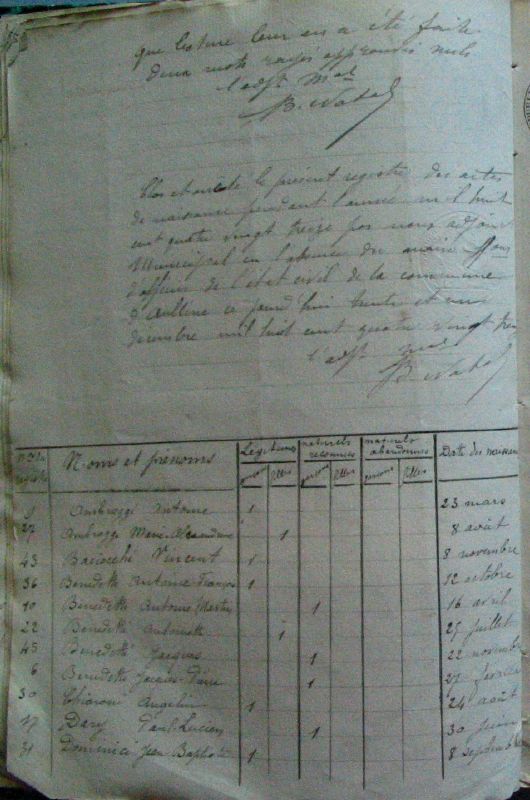 que lecture leur en a été faite
deux mots rayés approuvés nuls
l'adjt Mal
B. Natali
Clos et arrêté le présent registre des actes
de naissance pendant l'année mil huit
cent quatre vingt treize par nous adjoint
Municipal en l'absence du maire ffons
d'officier de l'état civil de la commune
d'Aullène ce jourd'hui trente et un
décembre mil huit cent quatre vingt treize
l'adjt Mal
B. Natali
Noms et prénoms Légitimes naturels reconnus naturels abandonnés Date des naissances
garçons filles garçons filles garçons filles
Ambroggi Antoine 1 23 mars
27 Ambroggi Marie 1 8 août
43 Baciocchi Vincent 1 8 novembre
36 Benedetti Antoine François 1 12 octobre
10 Benedetti Antoine Martin 1 16 avril
22 Benedetti Antoinette 1 25 juillet
45 Benedetti Jacques 1 22 novembre
6 Benedetti Jacques Pierre 1 février
30 Chiaroni Angelin 1 24 août
17 Paul Lucien 1 30 juin
31 Dominici Jean Baptiste 1 8 septembre